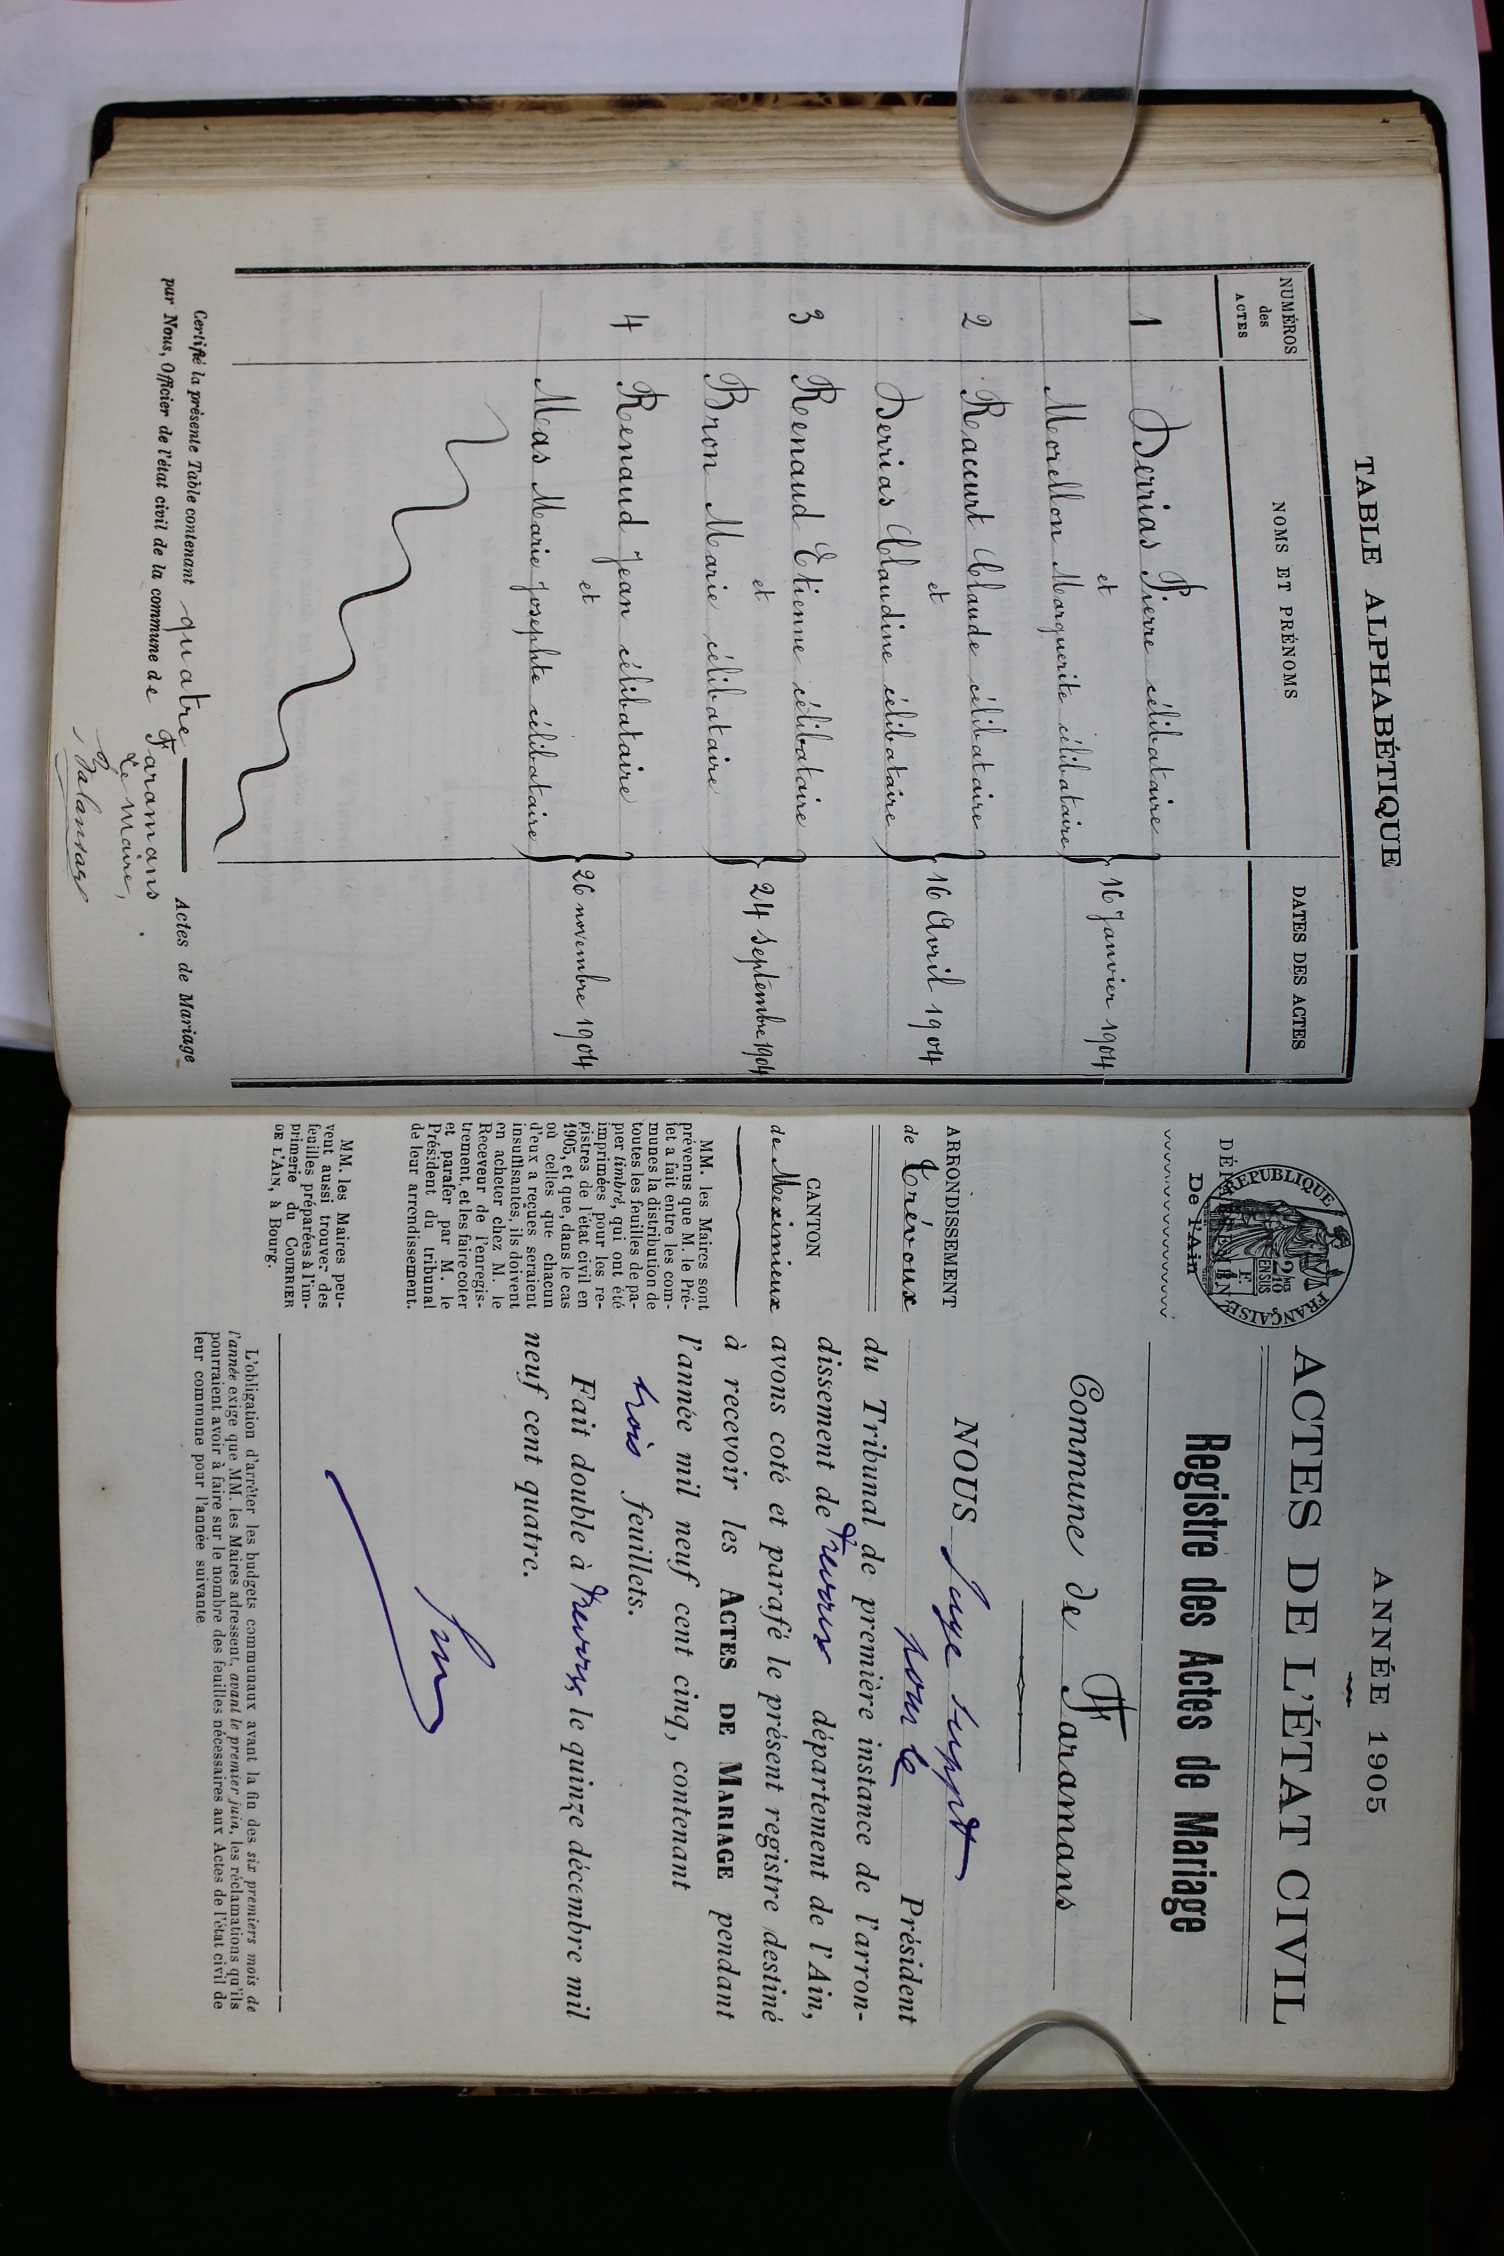 TABLE ALPHABÉTIQUE
NUMÉROS des ACTES
NOMS ET PRÉNOMS
DATES DES ACTES
1 Derrias Pierre célibataire
et
Morellon Marguerite célibataire
16 Janvier 1904
2 Raccurt Claude célibataire
et
Derrias Claudine célibataire
16 Avril 1904
3 Renaud Etienne célibataire
et
Bron Marie célibataire
24 Septembre 1904
4 Renaud Jean célibataire
et
Mas Marie Josephte célibataire
26 novembre 1904
Certifié la présente Table contenant quatre Actes de Mariage
par Nous, Officier de l'état civil de la commune de Faramans
Le Maire,
ANNÉE 1905
ACTES DE L'ÉTAT CIVIL
Registre des Actes de Mariage
Commune de Faramans
DÉPARTEMENT
De l'Ain
RÉPUBLIQUE FRANÇAISE
ARRONDISSEMENT
de Trévoux
CANTON
de Meximieux
MM. les Maires sont
prévenus que M. le Pré-
fet a fait entre les com-
munes la distribution de
toutes les feuilles de pa-
pier timbré, qui ont été
imprimées pour les re-
gistres de l'état civil en
1905, et que, dans le cas
où celles que chacun
d'eux a reçues seraient
insuffisantes, ils doivent
en acheter chez M. le
Receveur de l'enregis-
trement, et les faire coter
et parafer par M. le
Président du tribunal
de leur arrondissement.
MM. les Maires peu-
vent aussi trouver des
feuilles préparées à l'im-
primerie du COURRIER
DE L'AIN, à Bourg.
NOUS Juge suppt
pour le Président
du Tribunal de première instance de l'arron-
dissement de Trevoux département de l'Ain,
avons coté et parafé le présent registre destiné
à recevoir les ACTES DE MARIAGE pendant
l'année mil neuf cent cinq, contenant
trois feuillets.
Fait double à Trevoux, le quinze décembre mil
neuf cent quatre.
L'obligation d'arrêter les budgets communaux avant la fin des six premiers mois de
l'année exige que MM. les Maires adressent, avant le premier juin, les réclamations qu'ils
pourraient avoir à faire sur le nombre des feuilles nécessaires aux Actes de l'état civil de
leur commune pour l'année suivante.